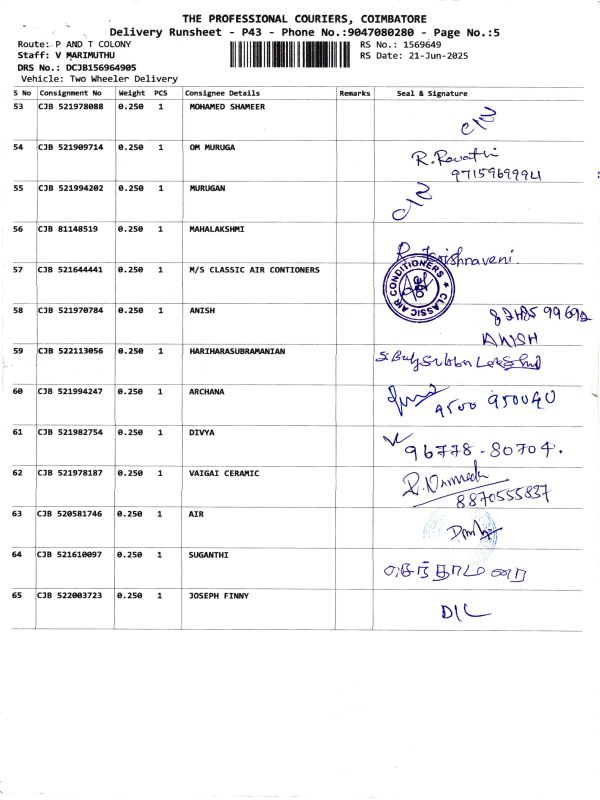 THE PROFESSIONAL COURIERS, COIMBATORE
Delivery Runsheet - P43 - Phone No.:9047080280 - Page No.:5
Route: P AND T COLONY
RS No.: 1569649
Staff: V MARIMUTHU
RS Date: 21-Jun-2025
DRS No.: DCJB156964905
Vehicle: Two Wheeler Delivery
S No Consignment No Weight PCS Consignee Details Remarks Seal & Signature
53 CJB 521978088 0.250 1 MOHAMED SHAMEER
54 CJB 521909714 0.250 1 OM MURUGA R. Revathi
9715969994
55 CJB 521994202 0.250 1 MURUGAN
56 CJB 81148519 0.250 1 MAHALAKSHMI R. Krishnaveni.
57 CJB 521644441 0.250 1 M/S CLASSIC AIR CONTIONERS CLASSIC AIR CONDITIONERS
58 CJB 521970784 0.250 1 ANISH
ANISH
59 CJB 522113056 0.250 1 HARIHARASUBRAMANIAN
60 CJB 521994247 0.250 1 ARCHANA 9500 950040
61 CJB 521982754 0.250 1 DIVYA 96778-80704.
62 CJB 521978187 0.250 1 VAIGAI CERAMIC
8870555837
63 CJB 520581746 0.250 1 AIR
64 CJB 521610097 0.250 1 SUGANTHI
65 CJB 522003723 0.250 1 JOSEPH FINNY D/L